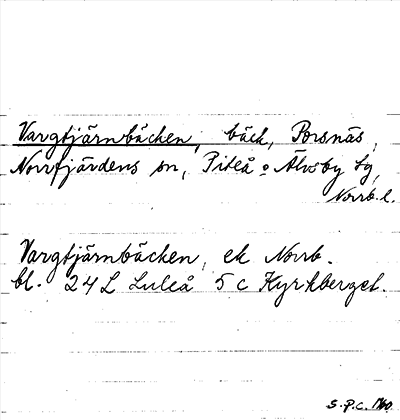 Vargtjärnbäcken, bäck, Porsnäs,
Norrfjärdens sn, Piteå o Älvsby tg,
Norrb. l.
Vargtjärnbäcken, ek Norrb.
bl. 24 L Luleå 5 c Kyrkberget.
S.P.C.